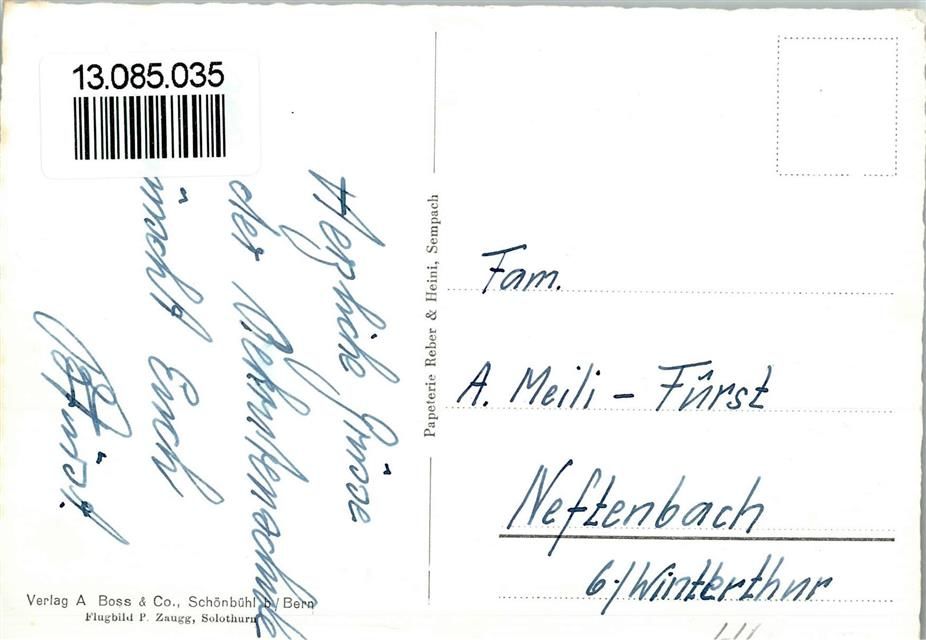 13.085.035
Herzliche Grüsse
der Rekrutenschule
wünscht Euch
Papeterie Reber & Heini, Sempach
Fam.
A. Meili - Fürst
Neftenbach
b/Winterthur
Verlag A Boss & Co., Schönbühl b/Bern
Flugbild P. Zaugg, Solothurn